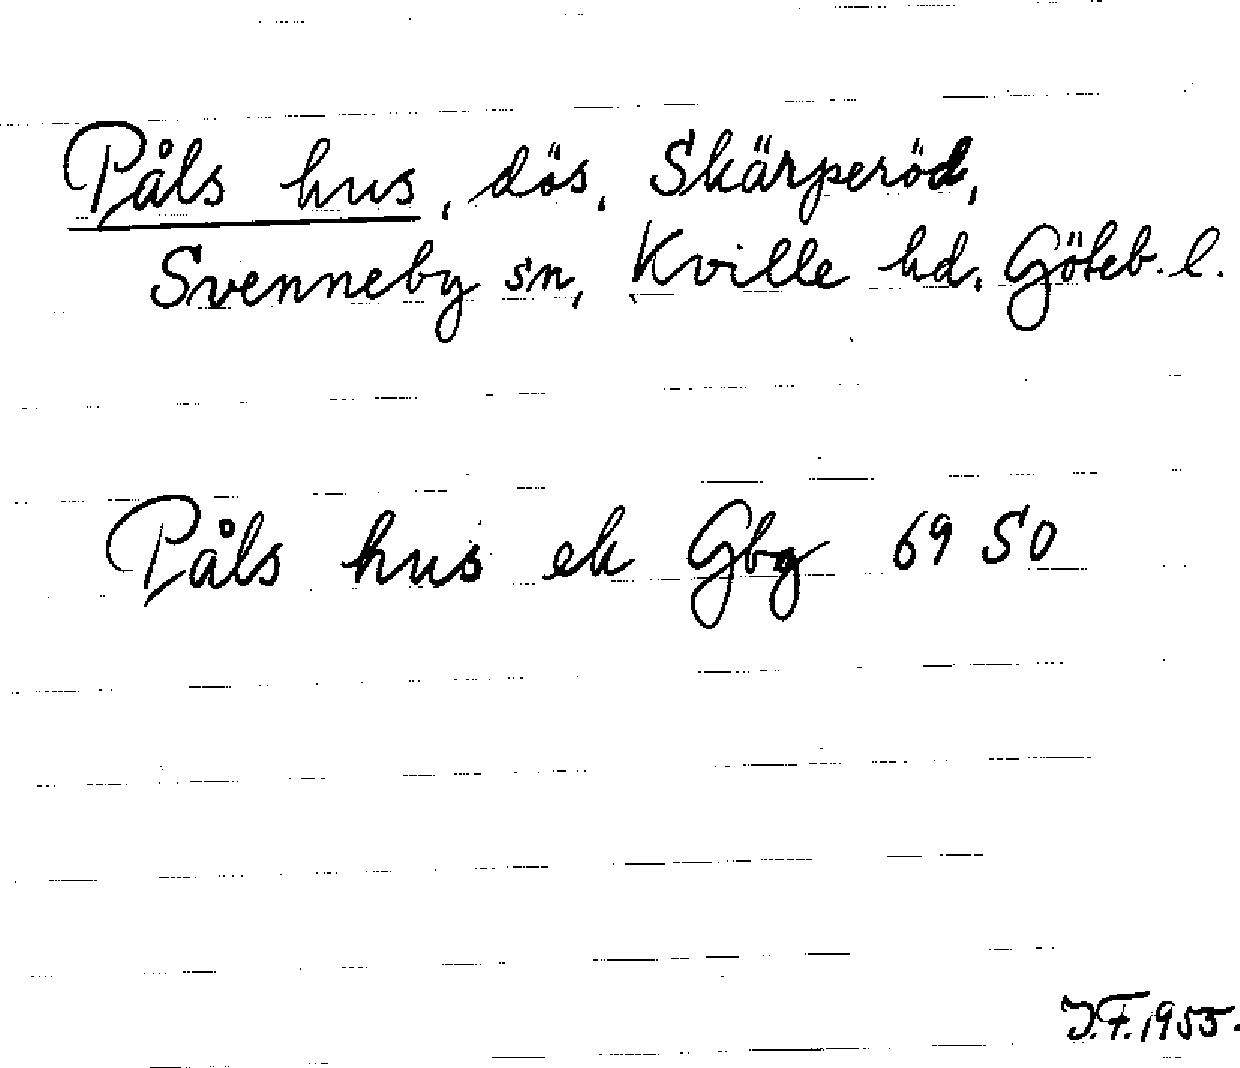 Påls hus, dös, Skärperöd,
Svenneby sn, Kville hd. Göteb. l.
Påls hus ek Gbg 69 SO
J.F. 1955.